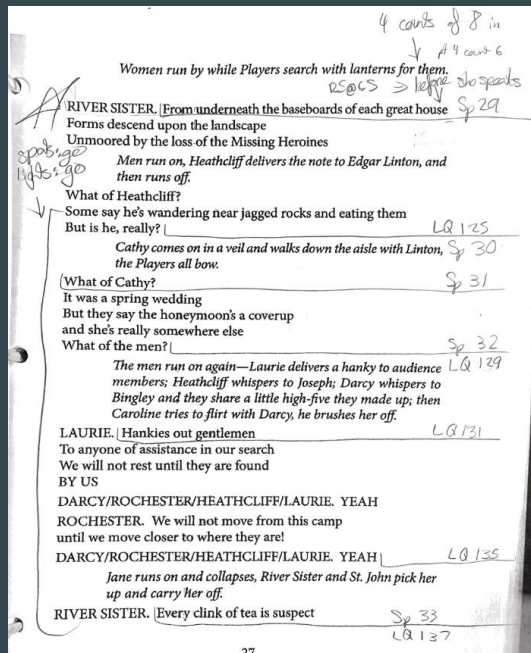 4 counts of 8 in
↓ pt 4 count 6
Women run by while Players search with lanterns for them.
RS@CS → before she speaks
RIVER SISTER. From underneath the baseboards of each great house Sp 29
Forms descend upon the landscape
Unmoored by the loss of the Missing Heroines
spots: go
Men run on, Heathcliff delivers the note to Edgar Linton, and
lights: go
then runs off.
What of Heathcliff?
Some say he's wandering near jagged rocks and eating them
But is he, really? LQ 125
Cathy comes on in a veil and walks down the aisle with Linton, Sp 30
the Players all bow.
What of Cathy? Sp 31
It was a spring wedding
But they say the honeymoon's a coverup
and she's really somewhere else
What of the men? Sp 32
The men run on again—Laurie delivers a hanky to audience LQ 129
members; Heathcliff whispers to Joseph; Darcy whispers to
Bingley and they share a little high-five they made up; then
Caroline tries to flirt with Darcy, he brushes her off.
LAURIE. Hankies out gentlemen LQ 131
To anyone of assistance in our search
We will not rest until they are found
BY US
DARCY/ROCHESTER/HEATHCLIFF/LAURIE. YEAH
ROCHESTER. We will not move from this camp
until we move closer to where they are!
DARCY/ROCHESTER/HEATHCLIFF/LAURIE. YEAH LQ 135
Jane runs on and collapses, River Sister and St. John pick her
up and carry her off.
RIVER SISTER. Every clink of tea is suspect Sp 33
LQ 137
27